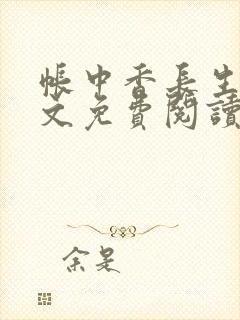 帳中香長生
文免費閱讀
余是